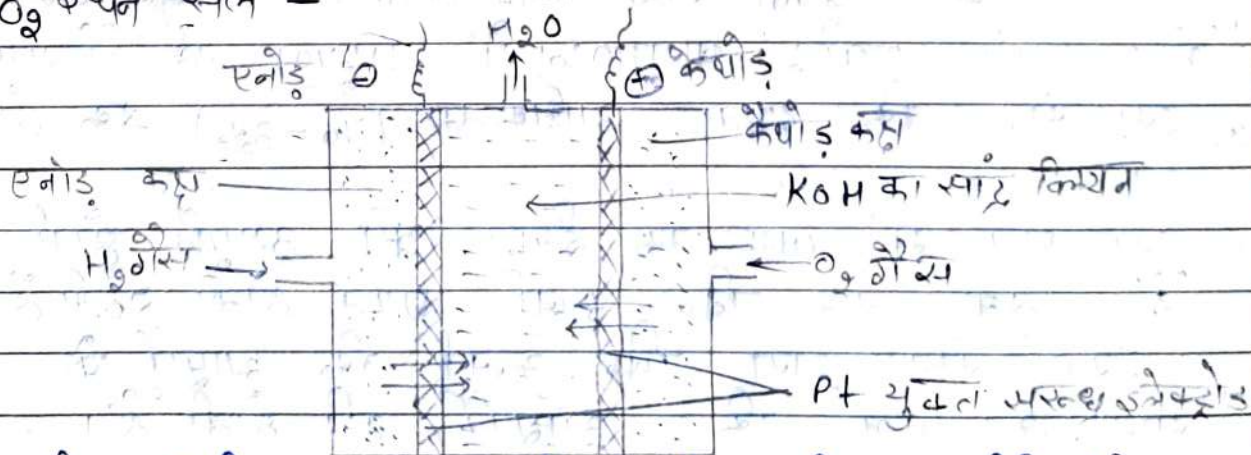 O₂ ईंधन सेल –
H₂O
एनोड़ ⊖
⊕ कैथोड़
कैथोड़ कक्ष
एनोड़ कक्ष
KOH का सांद्र विलयन
H₂ गैस
O₂ गैस
Pt युक्त सरन्ध्र इलेक्ट्रोड